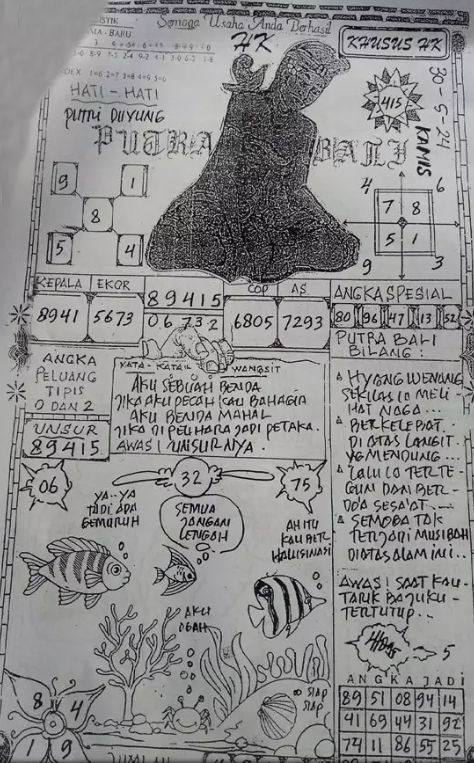 Semoga Usaha Anda Berhasil
HK
KHUSUS HK
HATI - HATI
PUTRI DUYUNG
PUTRA BALI
415
30-5-24
KAMIS
9 1
8
5 4
4 6
7 8
5 1
9 3
KEPALA EKOR
8941 5673
89415
06732
COP AS
6805 7293
ANGKA SPESIAL
80 96 47 13 52
ANGKA
PELUANG
TIPIS
0 DAN 2
UNSUR
89415
KATA - KATA WANGSIT
AKU SEBUAH BENDA
JIKA AKU PECAH KAU BAHAGIA
AKU BENDA MAHAL
JIKA DI PELIHARA JADI PETAKA.
AWAS! UNSURNYA.
PUTRA BALI
BILANG :
HYANG WENANG
SEKILAS IO MELI-
HAT NAGA...
BERKELEBAT.
DI ATAS LANGIT.
YG MENDUNG...
LALU IO TERTE-
GUN DAN BER-
DO'A SESA'AT...
SEMOGA TAK
TERJADI MUSIBAH
DIATAS ALAM INI..
AWAS! SAAT KAU
TARIK BAJUKU-
TERTUTUP...
5
06
32
75
YA..YA
TADI ADA
GEMURUH
SEMUA
JANGAN
LENGAH
AH ITU
KAU BER
HALUSINASI
AKU
OGAH
SIAP
SIAP
8 4
1 9
ANGKA JADI
89 51 08 94 14
41 69 44 31 92
74 11 86 55 25